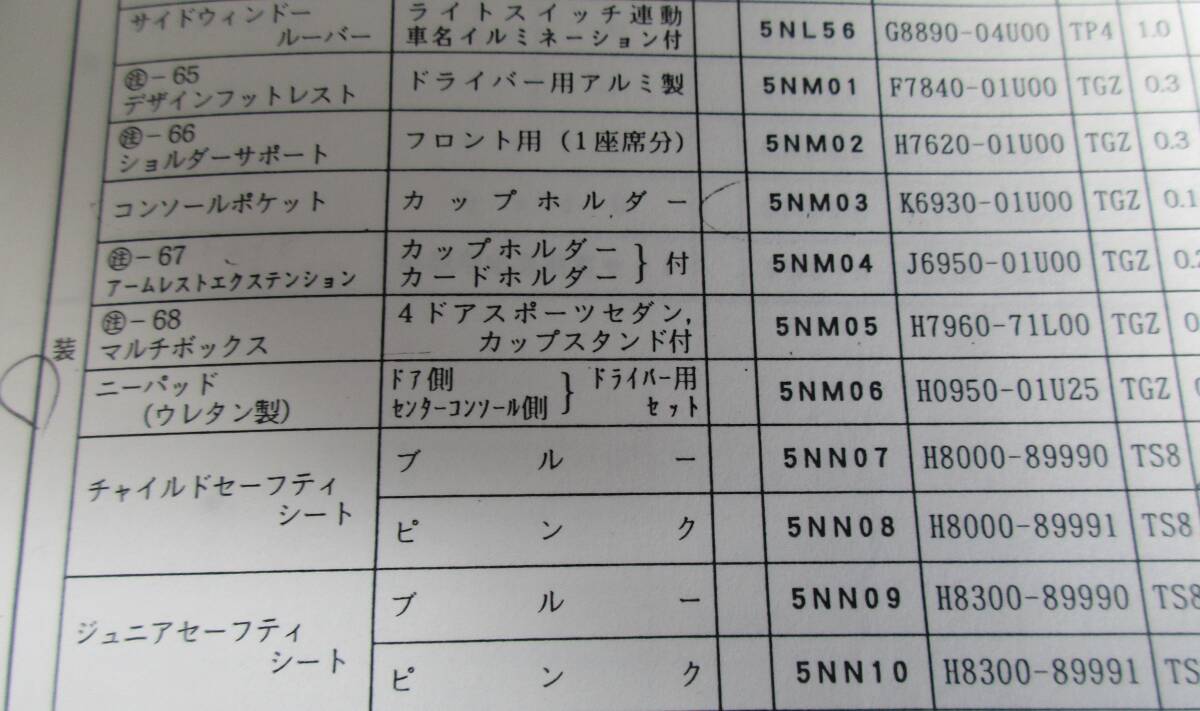 サイドウィンドー
ルーバー
ライトスイッチ連動
車名イルミネーション付
5NL56 G8890-04U00 TP4 1.0
㊟-65
デザインフットレスト
ドライバー用アルミ製
5NM01 F7840-01U00 TGZ 0.3
㊟-66
ショルダーサポート
フロント用(1座席分)
5NM02 H7620-01U00 TGZ 0.3
コンソールポケット
カップホルダー
5NM03 K6930-01U00 TGZ 0.1
㊟-67
アームレストエクステンション
カップホルダー
カードホルダー } 付
5NM04 J6950-01U00 TGZ 0.
㊟-68
マルチボックス
4ドアスポーツセダン,
カップスタンド付
5NM05 H7960-71L00 TGZ 0.
装
ニーパッド
(ウレタン製)
ドア側
センターコンソール側 }
ドライバー用
セット
5NM06 H0950-01U25 TGZ
チャイルドセーフティ
シート
ブルー
5NN07 H8000-89990 TS8
ピンク
5NN08 H8000-89991 TS8
ジュニアセーフティ
シート
ブルー
5NN09 H8300-89990 TS8
ピンク
5NN10 H8300-89991 TS